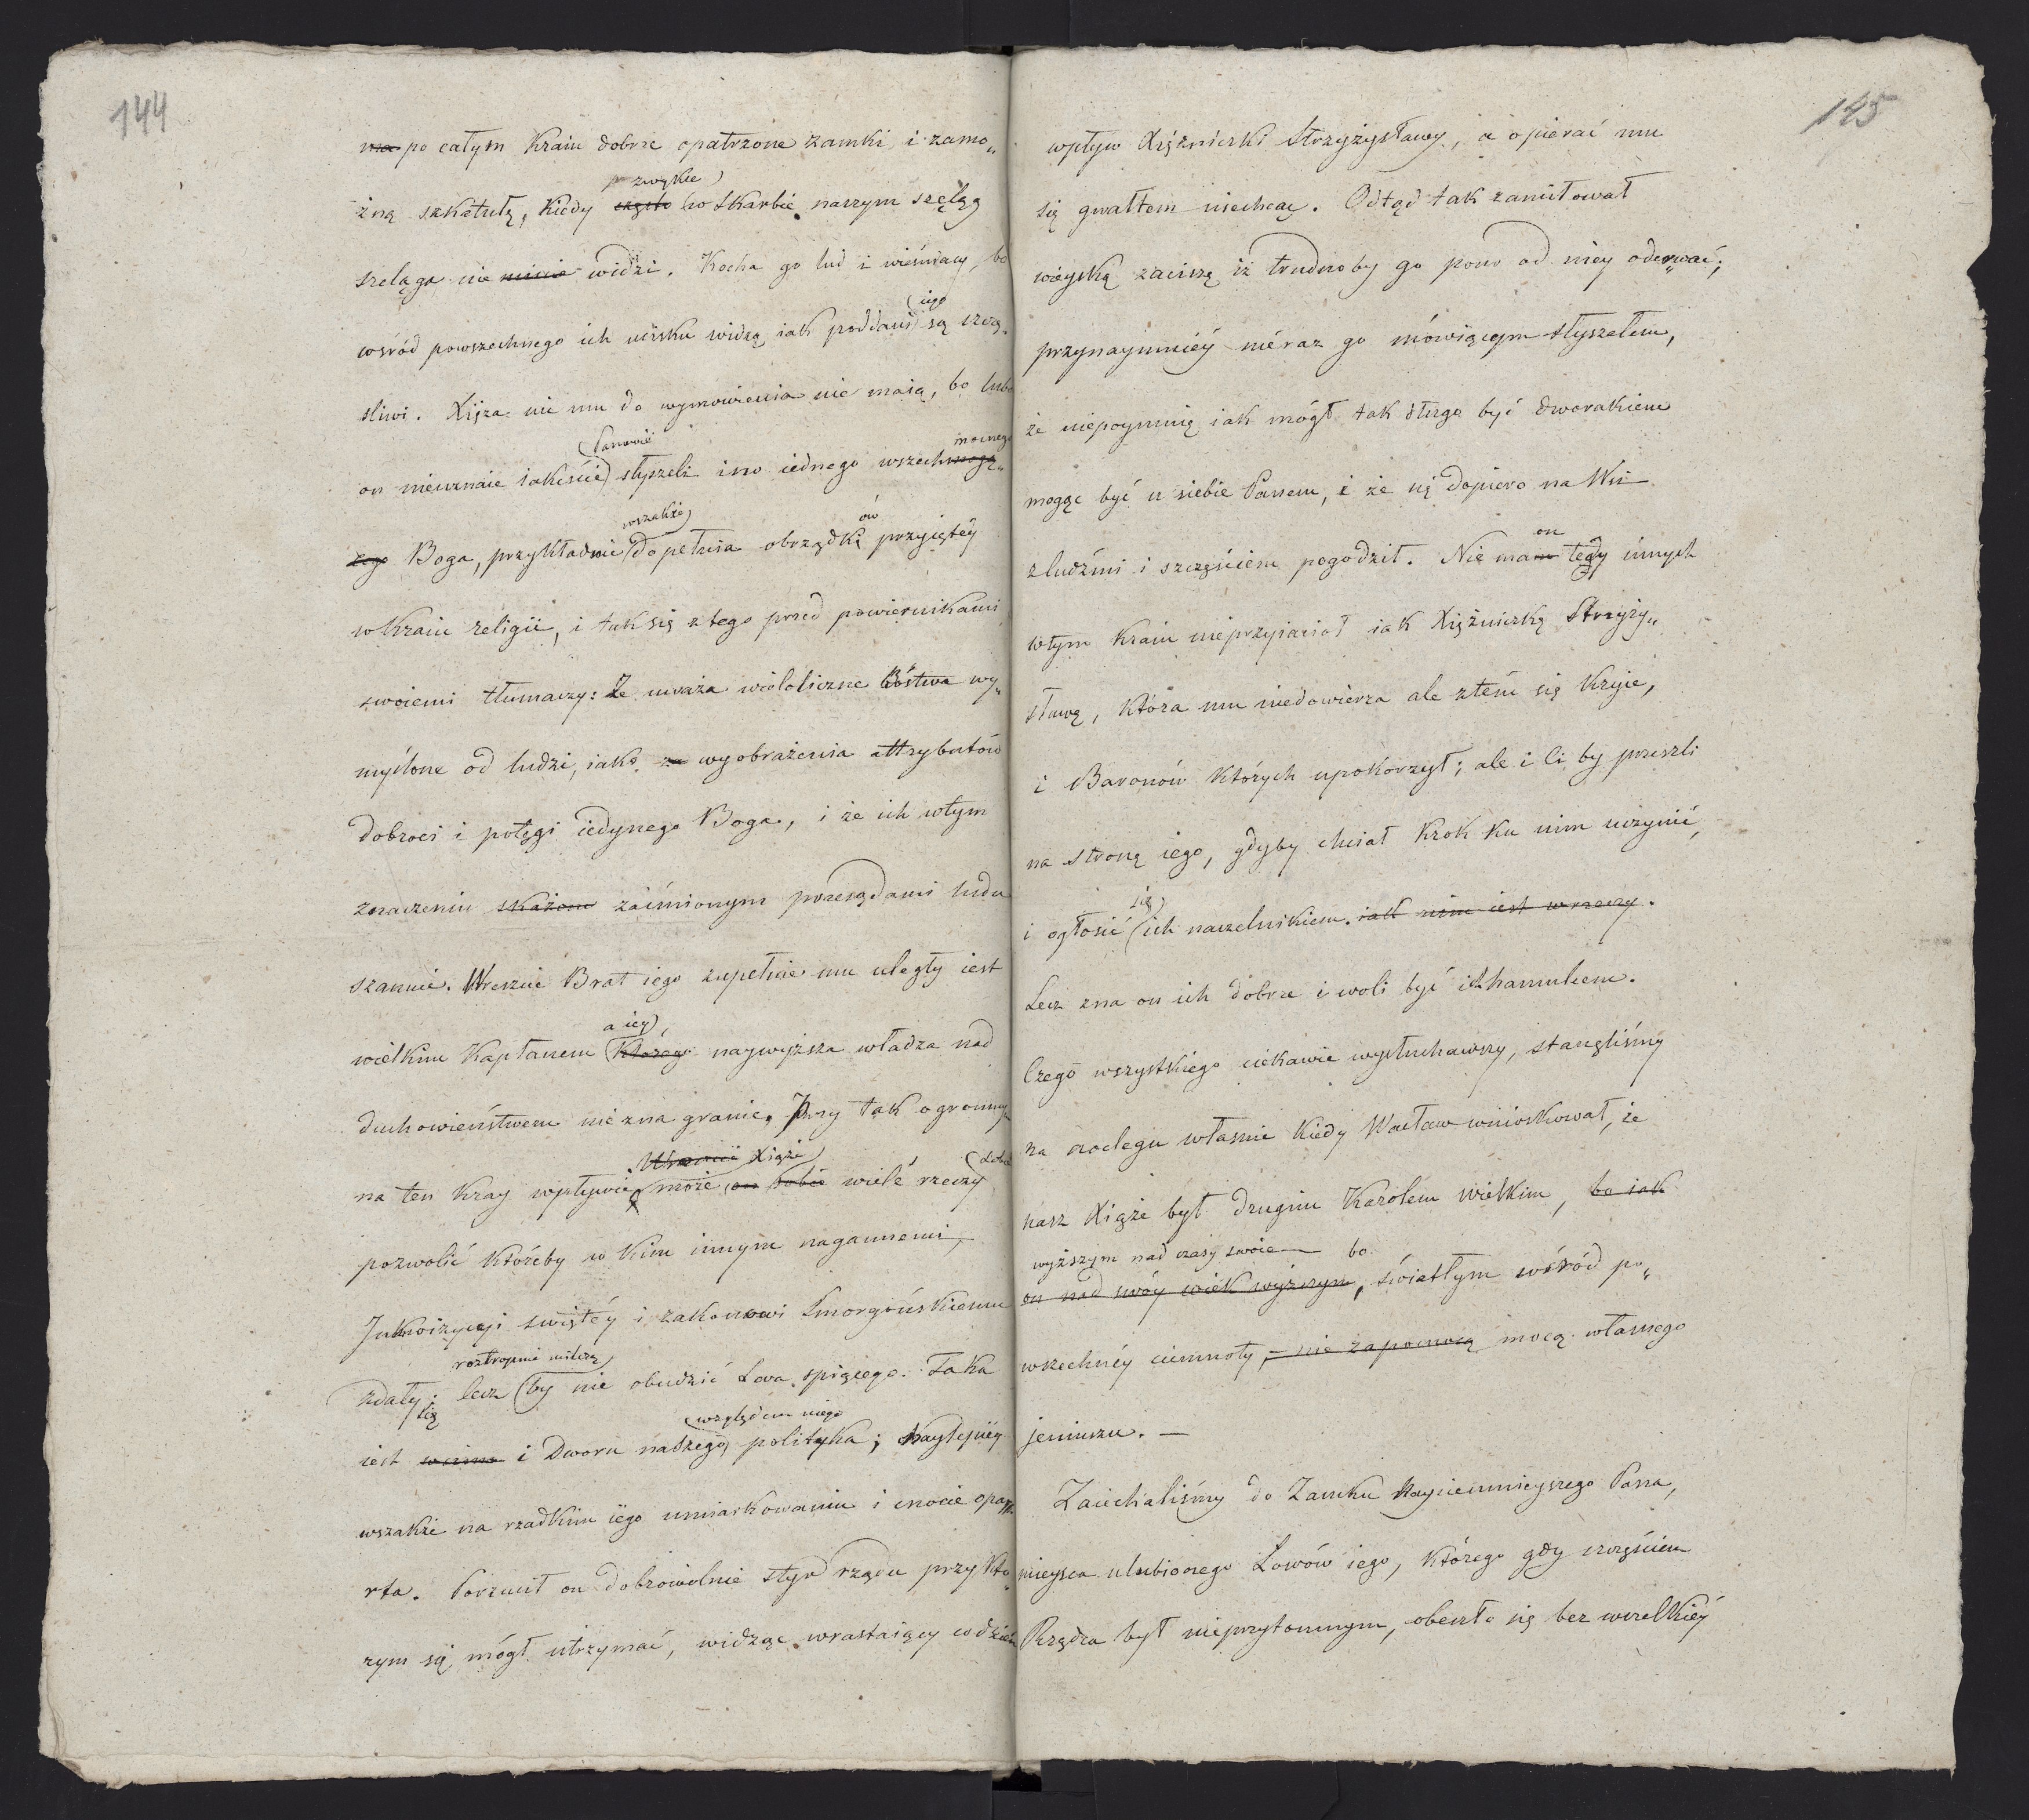 144
ma po całym kraiu dobrze opatrzone zamki i zamo„
zwykle
żną szkatułę, kiedy często w skarbie naszym szeląg
szeląga nie widzi. Kocha go lud i wieśniacy, bo
iego
wśród powszechnego ich ucisku widzą iak poddani są szczę„
śliwi. Xięża nic mu do wymówienia nie maią, bo lubo
Panowie mocnego
on nieuznaie iakeście słyszeli ino iednego wszechmogą„
wszakże ów
cego Boga, przykładnie dopełnia obrządki przyiętéy
w kraiu religii, i tak się z tego przed powiernikami
swoiemi tłumaczy: Że uważa wieloliczne Bóstwa wy„
myślone od ludzi, iako za wyobrażenia attrybutów
dobroci i potęgi iedynego Boga, i że ich w tym
znaczeniu skażone zaćmionym przesądami ludu
szanuie. Wreszcie Brat iego zupełnie mu uległy iest
a iey
wielkim Kapłanem którego naywyższa władza nad
duchowieństwem nie zna granic. Przy tak ogromnym
Wreszcie Xiąże sobie
na ten kray wpływie może on sobie wiele rzeczy
pozwolić któreby w kim innym nagannemi,
Inkwizycyi świętéy i zakonowi Smorgońskiemu
roztropnie milczą
zdały; lecz by nie obudzić Lwa spiącego. Taka
się względem niego
iest i Dworu naszego polityka; naylepiéy
wszakże na rzadkim iego umiarkowaniu i cnocie opa„
rta. Porzucił on dobrowolnie styr rządu przy któ„
rym się mógł utrzymać, widząc wzrastaiący codzień
145
wpływ Xiężniczki Strzyżysławy, a opierać mu
się gwałtem niechcąc. Odtąd tak zamiłował
wieyską zaciszę iż trudnoby go pono od niey oderwać;
przynaymniéy nieraz go mówiącym słyszałem,
że niepoymuię iak mógł tak długo być dworakiem
mogąc być u siebie Panem, i że się dopiero na Wsi
on
z ludźmi i szczęściem pogodził. Nie mam tedy innych
w tym kraiu nieprzyiaciół iak Xiężniczkę Strzyży„
sławę, która mu niedowierza ale z tém się kryie,
i Baronów których upokorzył; ale i Ci by przeszli
na stronę iego, gdyby chciał krok ku nim uczynić,
się
i ogłosić ich naczelnikiem. iak nim iest w rzeczy.
Lecz zna on ich dobrze i woli być ich hamulcem.
Czego wszystkiego ciekawie wysłuchawszy, stanęliśmy
na noclegu własnie kiedy Wacław wnioskował, że
nasz Xiąże był drugim Karolem Wielkim, bo iak
wyższym nad czasy swoie — bo
on nad swóy wiek wyższym, światłym wśród po„
wszechnéy ciemnoty, — nie za pomocą mocą własnego
jeniuszu. —
Zaiechaliśmy do Zamku Nayciemnieyszego Pana,
mieysca ulubionego Łowów iego, którego gdy szczęściem
Rządca był nieprzytomnym, obeszło się bez wszelkiéy